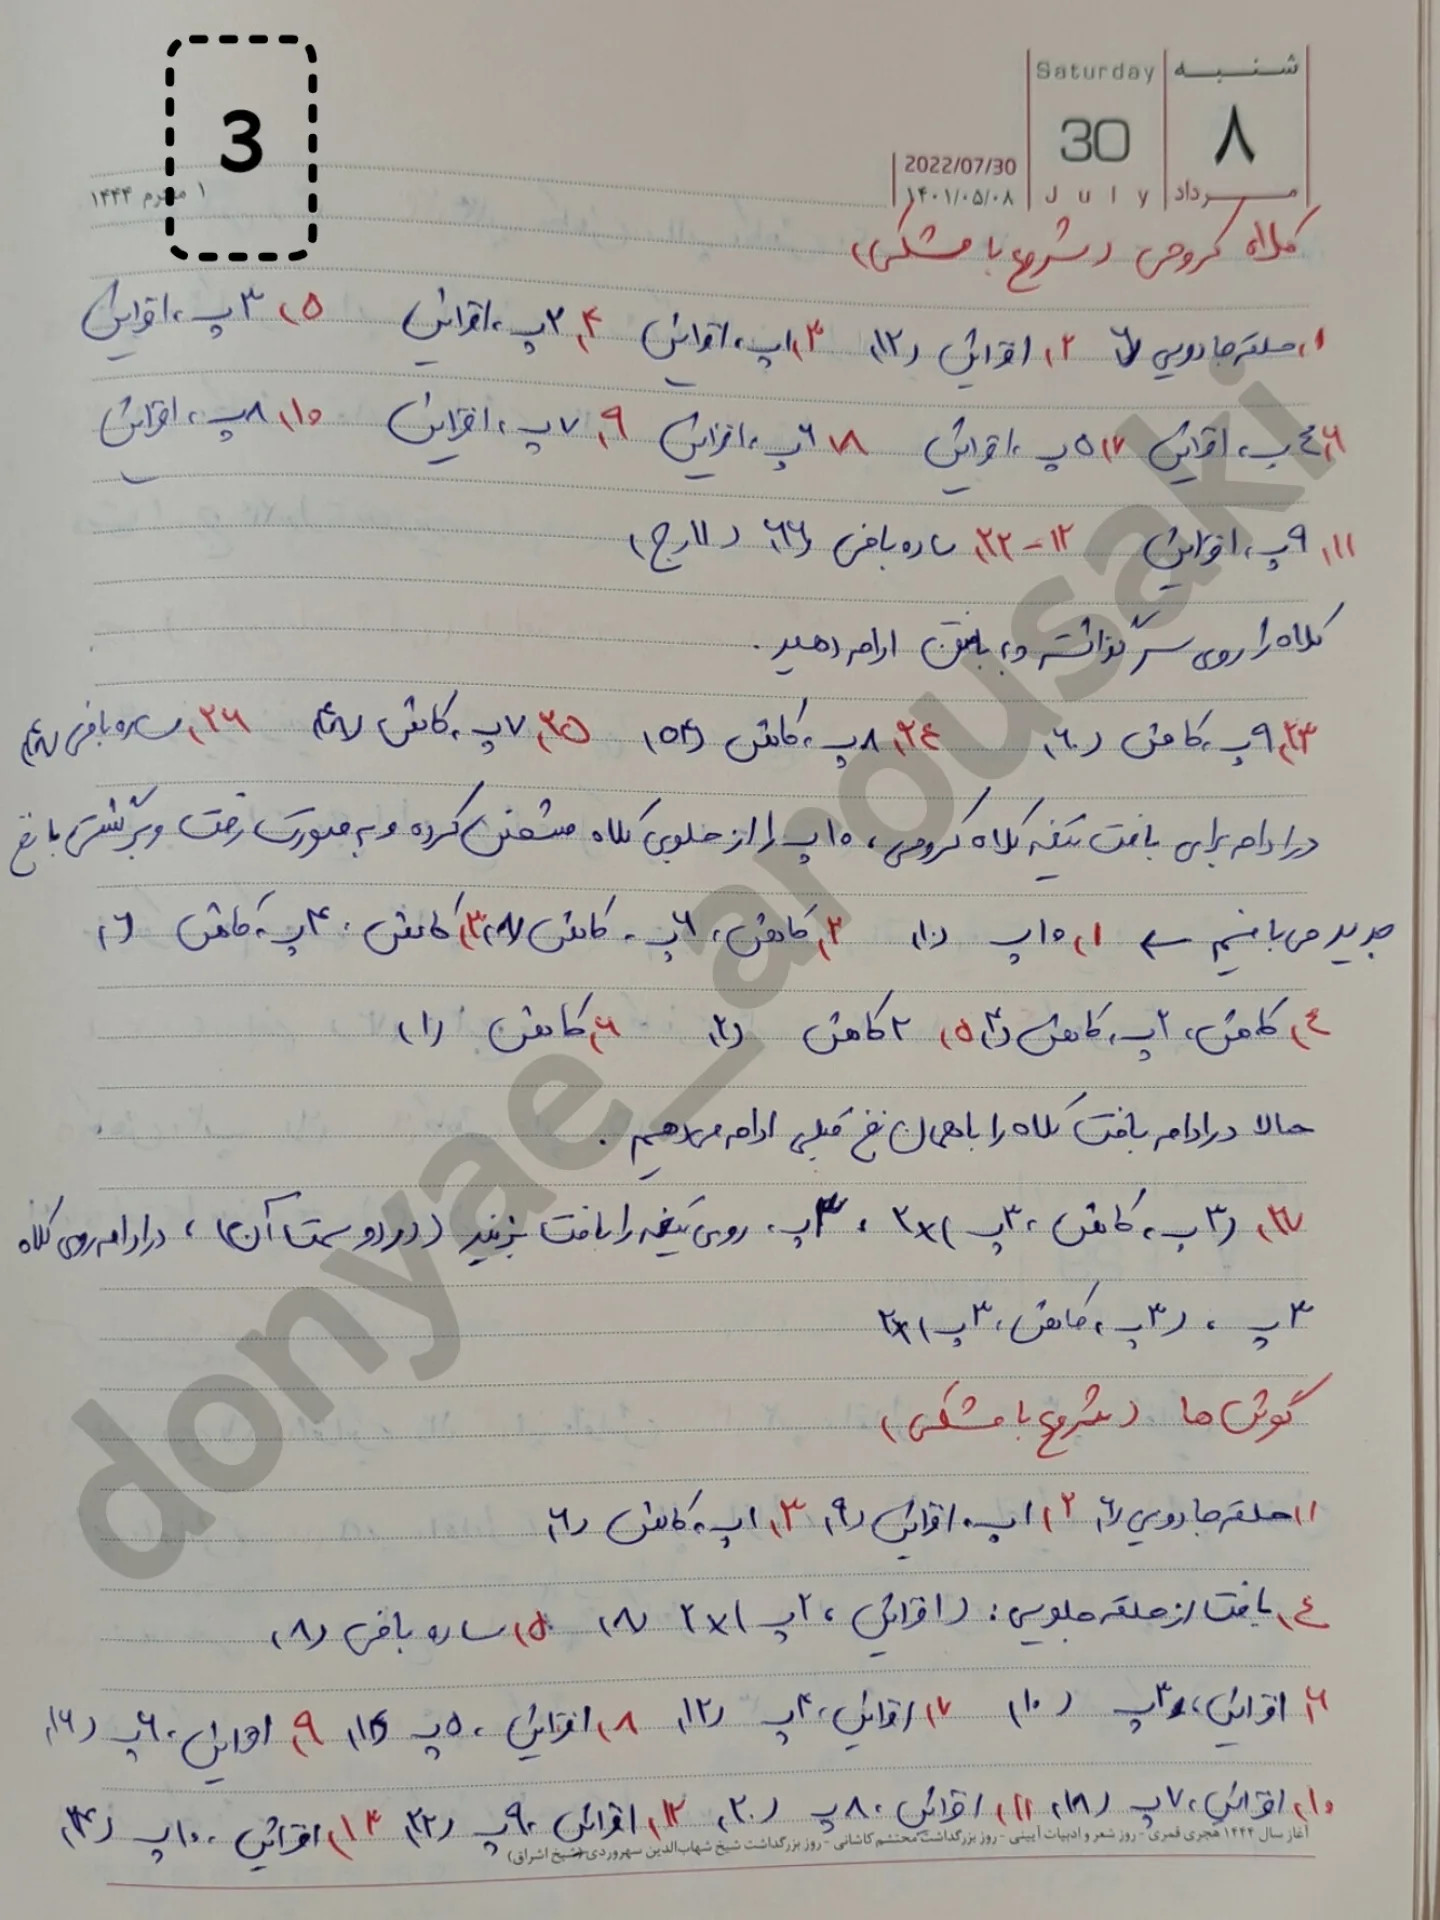 3
Saturday شنبه
30 ۸
July مرداد
2022/07/30
۱۴۰۱/۰۵/۰۸
۱ محرم ۱۴۴۴
کلاه کروحی (شروع با مشکی)
۱) حلقه جادویی ۶ ۲) افزایش (۱۲) ۳) ۱پ، افزایش ۴) ۲پ، افزایش ۵) ۳پ، افزایش
۶) ۴پ، افزایش ۷) ۵پ، افزایش ۸) ۶پ، افزایش ۹) ۷پ، افزایش ۱۰) ۸پ، افزایش
۱۱) ۹پ، افزایش ۱۲-۲۲) ساده بافی (۶۶) (۱۱رج)
کلاه را روی سر گذاشته و به بافتن ادامه دهید.
۲۳) ۹پ، کاهش (۶۰) ۲۴) ۸پ، کاهش (۵۴) ۲۵) ۷پ، کاهش (۴۸) ۲۶) ساده بافی (۴۸)
در ادامه برای بافت تیغه کلاه کروحی، ۱۰پ را از جلوی کلاه مشخص کرده و به صورت رفت و برگشتی با نخ
جدید می بافیم ← ۱) ۱۰پ (۱۰) ۲) کاهش، ۶پ، کاهش (۸) ۳) کاهش، ۴پ، کاهش (۶)
۴) کاهش، ۲پ، کاهش (۴) ۵) ۲کاهش (۲) ۶) کاهش (۱)
حالا در ادامه بافت کلاه را با همان نخ قبلی ادامه می دهیم.
۲۷) (۳پ، کاهش، ۳پ)×۲، ۳پ، روی تیغه را بافت بزنید (در دو سمت آن)، در ادامه روی کلاه
۳پ، (۳پ، کاهش، ۳پ)×۲
گوش ها (شروع با مشکی)
۱) حلقه جادویی (۶) ۲) ۱پ، افزایش (۹) ۳) ۱پ، کاهش (۶)
۴) بافت از حلقه جلویی: (افزایش، ۲پ)×۲ (۸) ۵) ساده بافی (۸)
۶) افزایش، ۳پ (۱۰) ۷) افزایش، ۴پ (۱۲) ۸) افزایش، ۵پ (۱۴) ۹) افزایش، ۶پ (۱۶)
۱۰) افزایش، ۷پ (۱۸) ۱۱) افزایش، ۸پ (۲۰) ۱۲) افزایش، ۹پ (۲۲) ۱۳) افزایش، ۱۰پ (۲۴)
آغاز سال ۱۴۴۴ هجری قمری - روز شعر و ادبیات آیینی - روز بزرگداشت محتشم کاشانی - روز بزرگداشت شیخ شهاب‌الدین سهروردی (شیخ اشراق)
donyae_arousaki